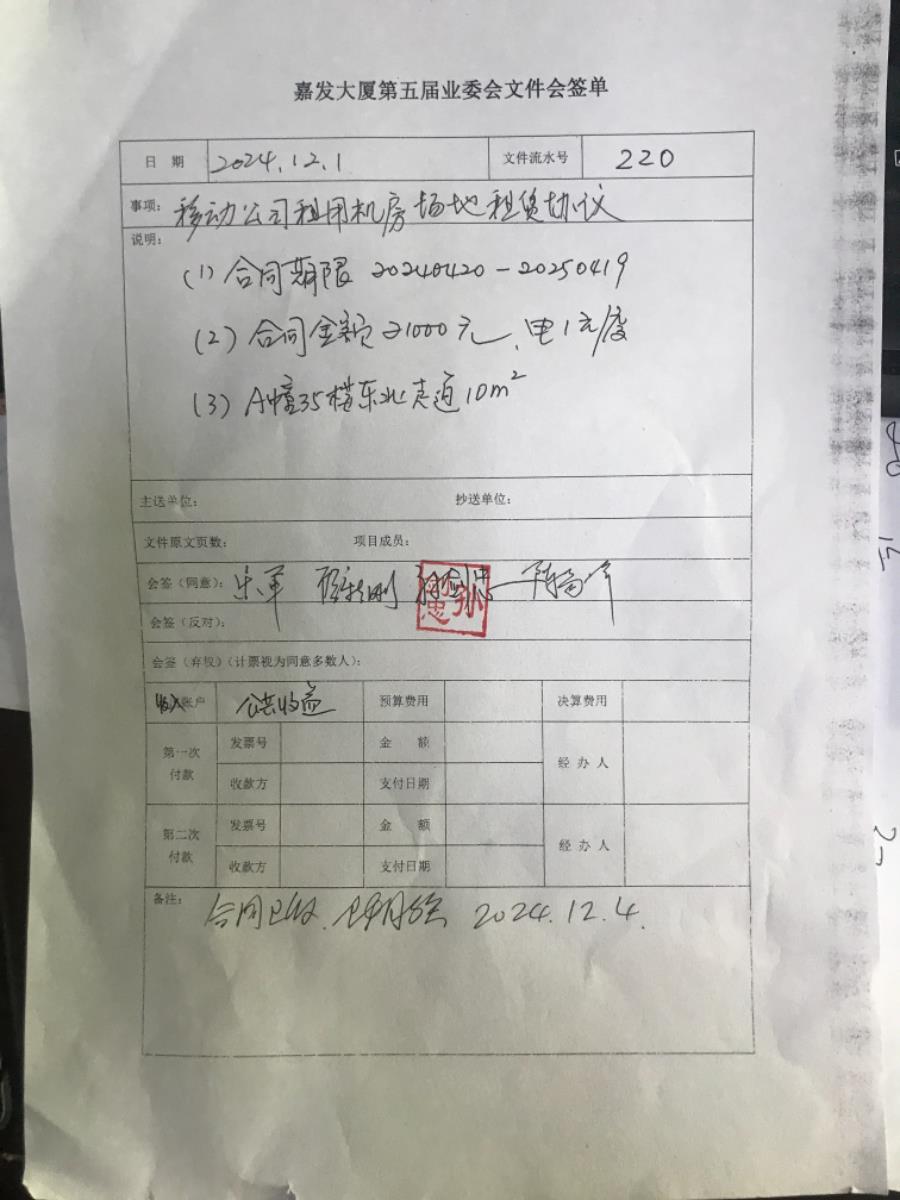 嘉发大厦第五届业委会文件会签单
日 期 2024.12.1 文件流水号 220
事项: 移动公司租用机房场地租赁协议
说明:
(1) 合同期限 20240420-20250419
(2) 合同金额21000元、电1元/度
(3) A幢35楼东北走道10m²
主送单位: 抄送单位:
文件原文页数: 项目成员:
会签(同意):
会签(反对):
会签(弃权)(计票视为同意多数人):
收入账户 公共收益 预算费用 决算费用
第一次付款 发票号 金 额 经 办 人
收款方 支付日期
第二次付款 发票号 金 额 经 办 人
收款方 支付日期
备注: 合同已收、 2024.12.4.